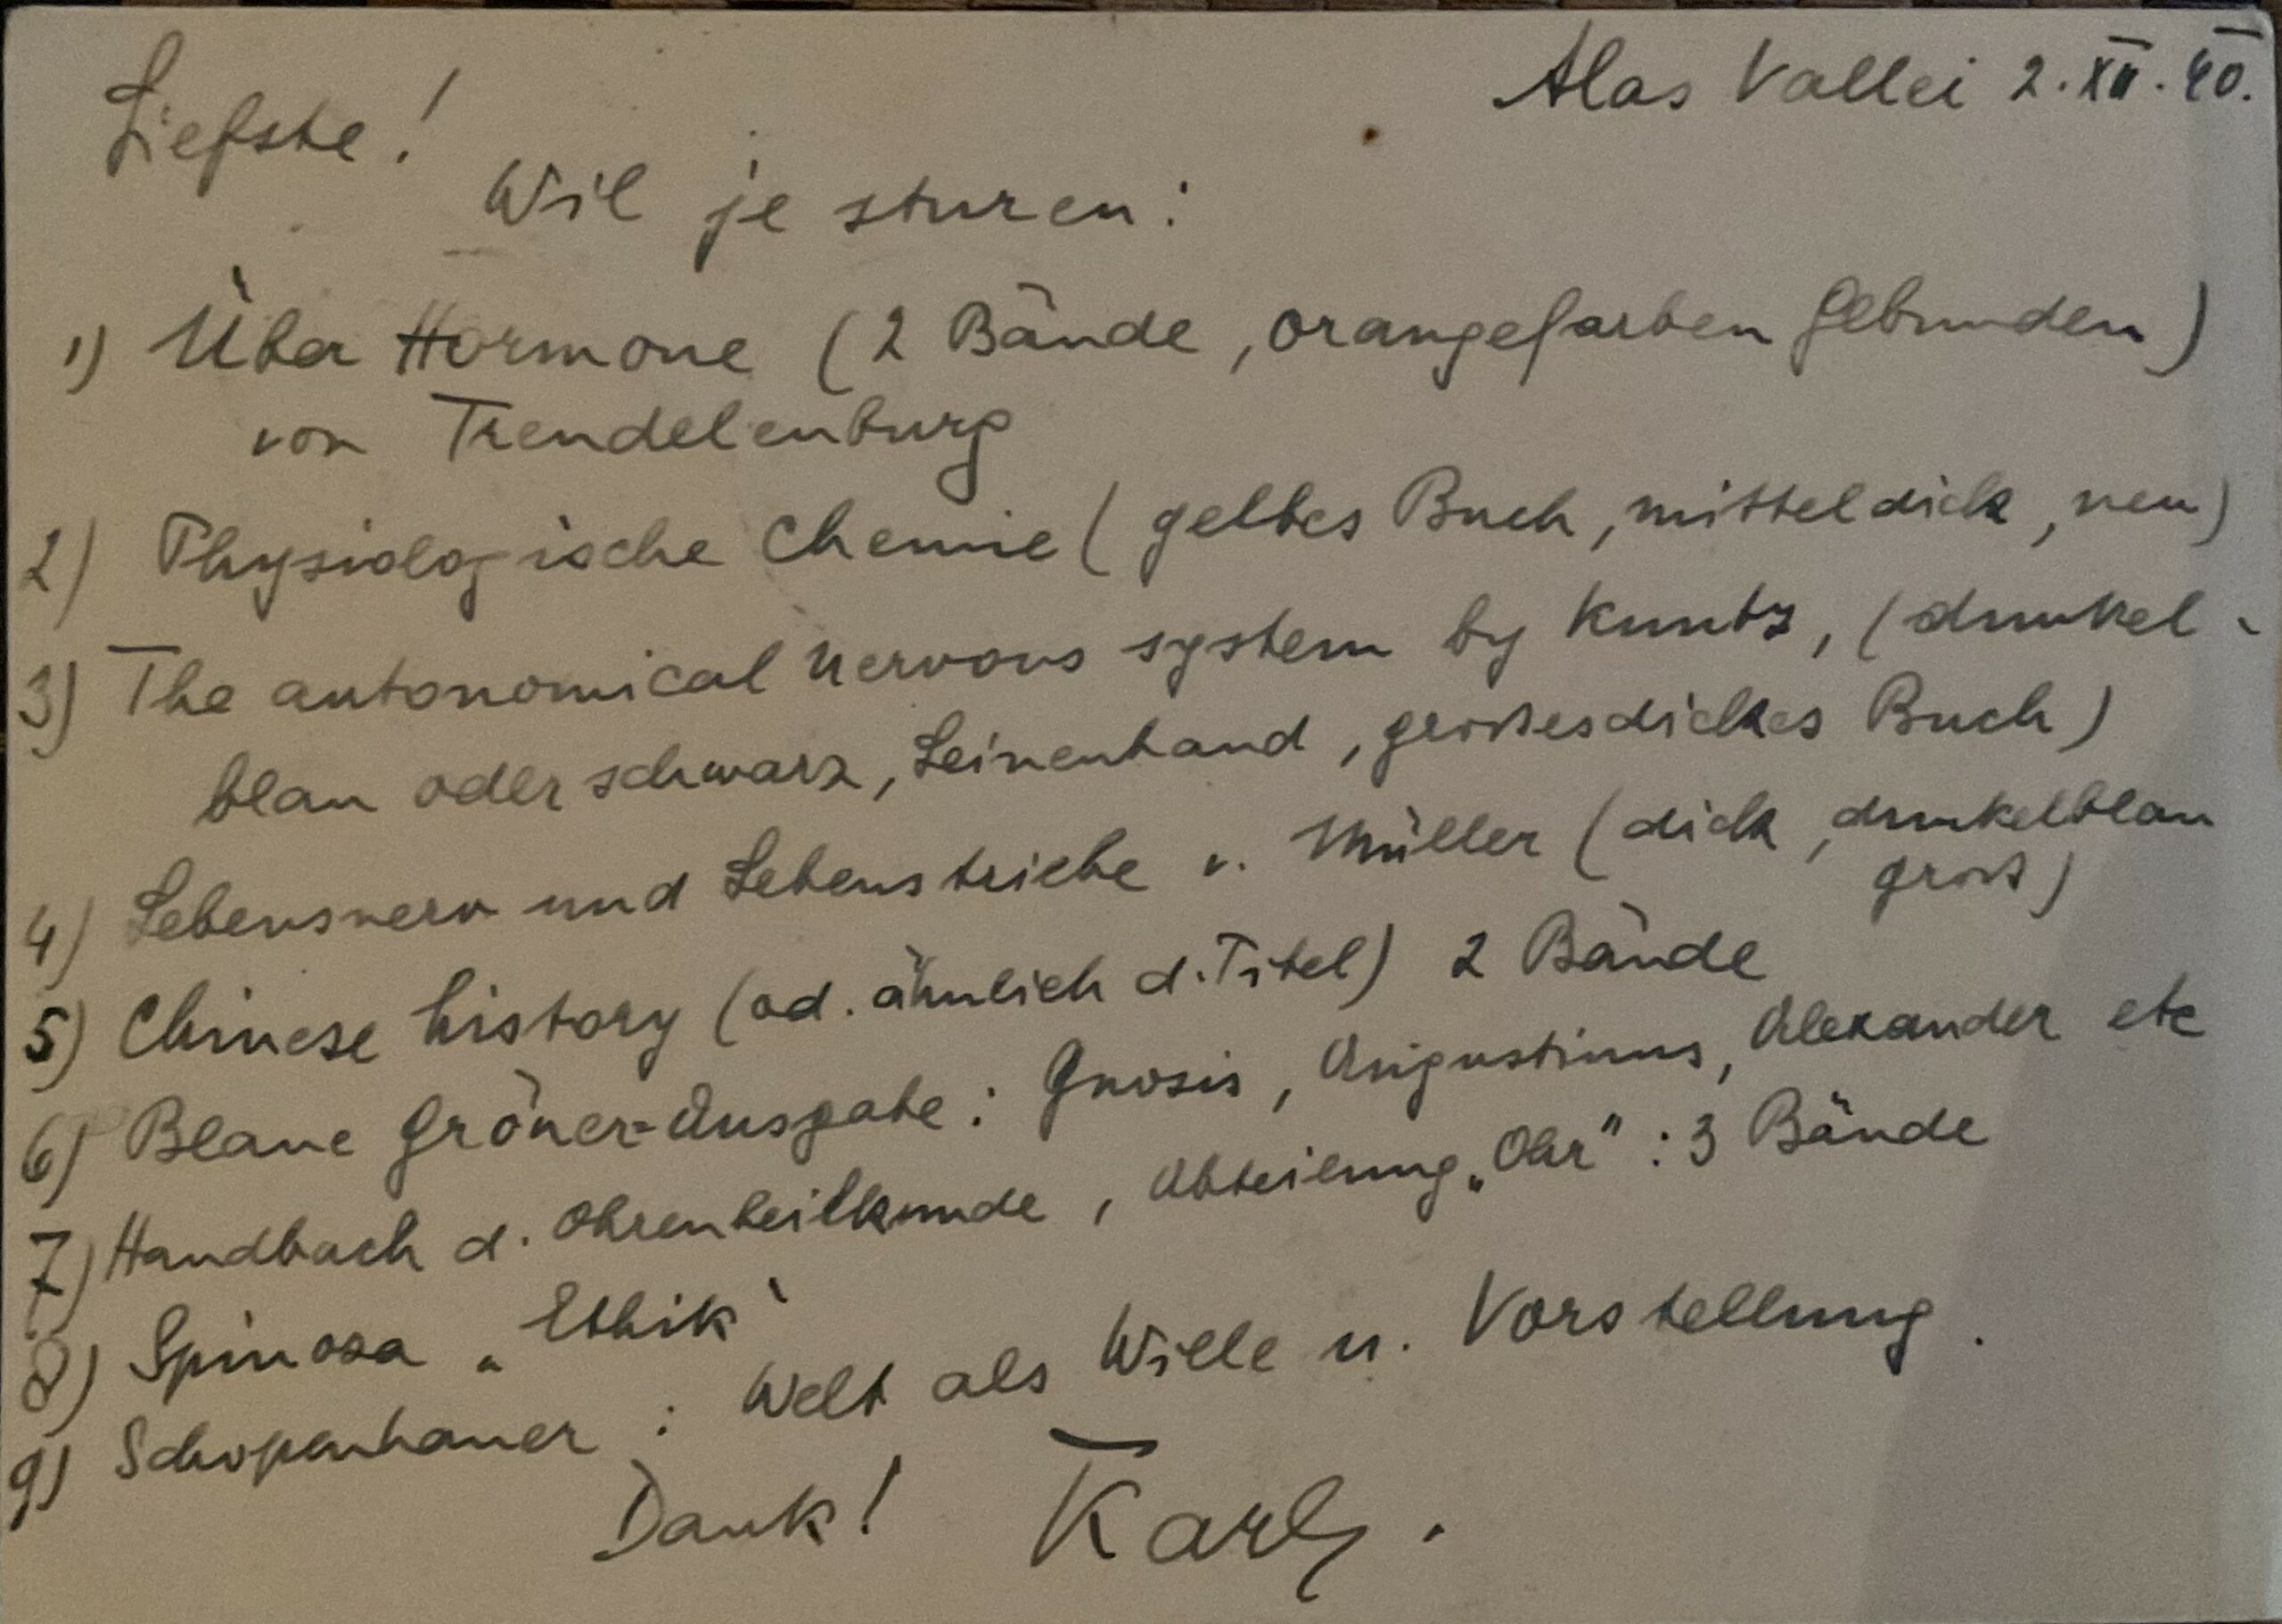 Alas Vallei 2.XII.40.
Liefste!
Wil je sturen:
1) Über Hormone (2 Bände, orangefarben gebunden)
von Trendelenburg
2) Physiologische Chemie (gelbes Buch, mitteldick, neu)
3) The autonomical nervous system by Kuntz, (dunkel-
blau oder schwarz, Leinenband, großesdickes Buch)
4) Lebensnerv und Lebenstriebe v. Müller (dick, dunkelblau
groß)
5) Chinese history (od. ähnlich d. Titel) 2 Bände
6) Blaue Gröner-Ausgabe: Gnosis, Augustinus, Alexander etc
7) Handbuch d. Ohrenheilkunde, Abteilung „Ohr": 3 Bände
8) Spinoza „Ethik"
9) Schopenhauer: Welt als Wille u. Vorstellung.
Dank! Karl.